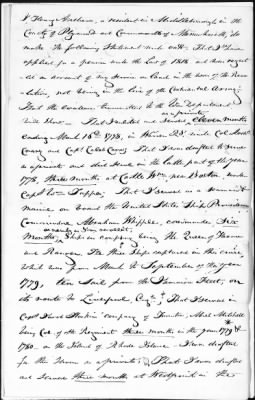 I Henry Washburn, a resident in Middleborough in the
County of Plymouth and Commonwealth of Massachusetts, do
make the following Statement under oath - That I have
applied for a pension under the Law of 1818 and been reject-
ed on account of my Service on Land in the war of the Revo-
lution, not being in the line of the Continental Army
That the evidence transmitted to the War Department
as a private
will show - That I enlisted and served Eleven months
ending March 16th 1778, in
Crary and Capt. Caleb Carr. That I was drafted to serve
as a private and did serve in the latter part of the year
1778, three months at Castle Wm. near Boston under
Capt. Wm. Tupper, That I served as a
marine on board the United States Ship Providence
Commodore Abraham Whipple, commander Six
Months, Ships in company being the Queen of France
and Ranger. The three Ships captured in the cruise,
which was from March to September of the year
1779, ten Sail from the Jamaica Fleet, on
the route to Liverpool. That I served in
Capt. company of Taunton, Abiel Mitchell
being Col. of the Regiment three months in the year 1779 &
1780. on the Island of Rhode Island I was drafted
for the as a private; That I was drafted
and served three months at in the